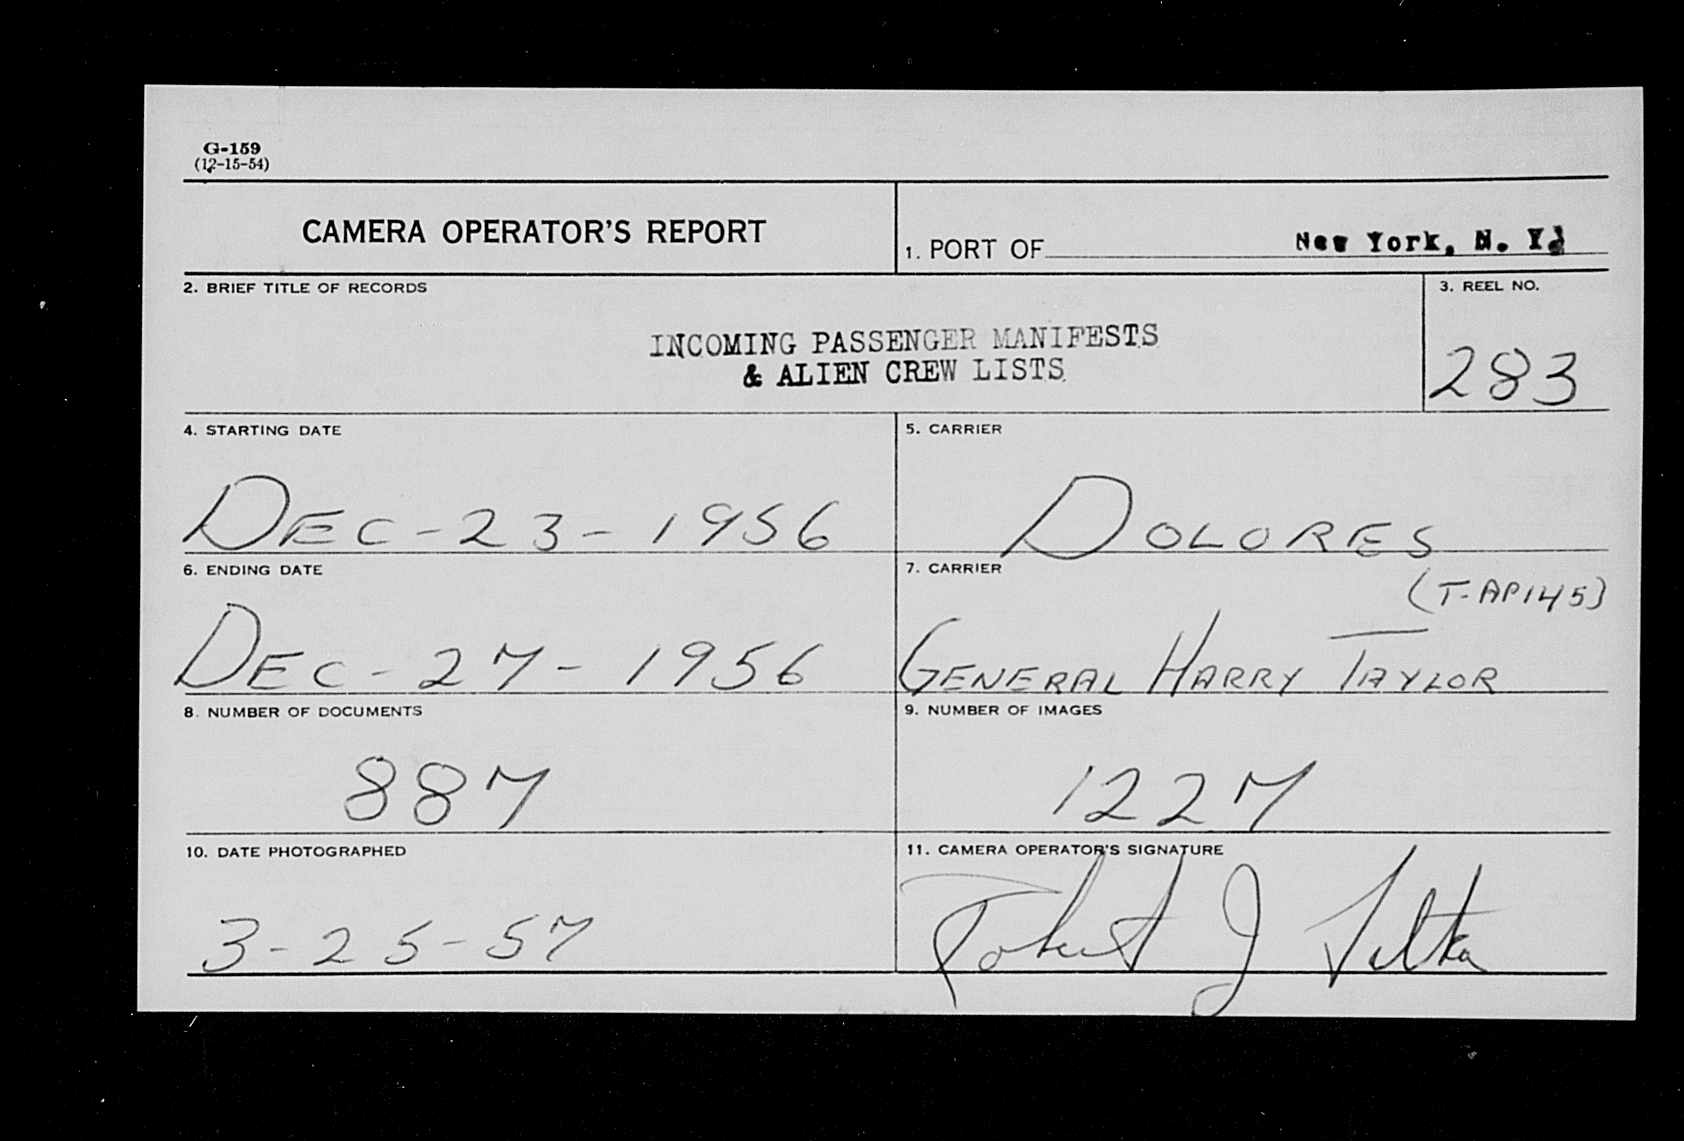 G-159
(12-15-54)
CAMERA OPERATOR'S REPORT
1. PORT OF New York, N. Y.
2. BRIEF TITLE OF RECORDS
INCOMING PASSENGER MANIFESTS
& ALIEN CREW LISTS.
3. REEL NO.
283
4. STARTING DATE
DEC-23-1956
5. CARRIER
DOLORES
6. ENDING DATE
DEC-27-1956
7. CARRIER
(T-AP145)
GENERAL HARRY TAYLOR
8. NUMBER OF DOCUMENTS
887
9. NUMBER OF IMAGES
1227
10. DATE PHOTOGRAPHED
3-25-57
11. CAMERA OPERATOR'S SIGNATURE
Robert J